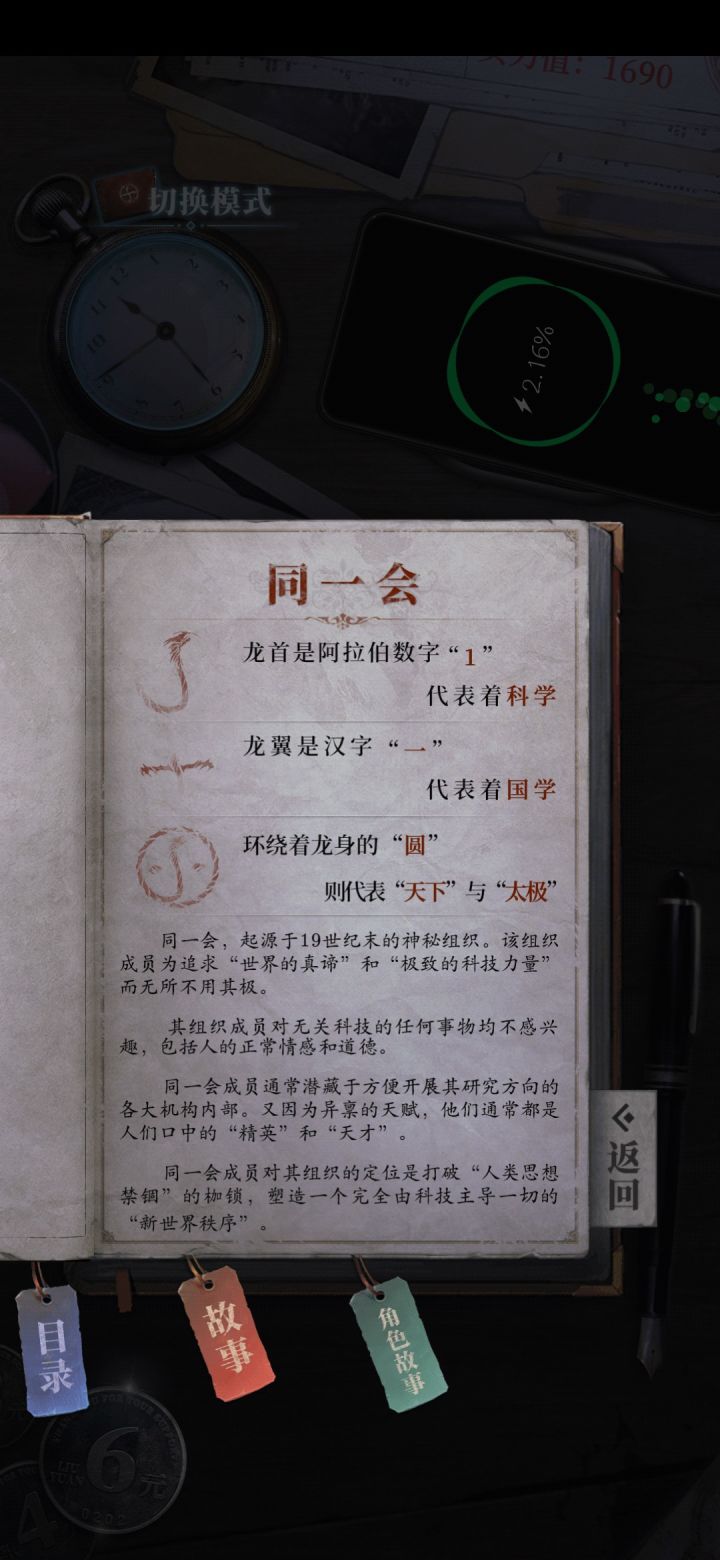 值：1690
切换模式
2.16%
同一会
龙首是阿拉伯数字“1”
代表着科学
龙翼是汉字“一”
代表着国学
环绕着龙身的“圆”
则代表“天下”与“太极”
同一会，起源于19世纪末的神秘组织。该组织
成员为追求“世界的真谛”和“极致的科技力量”
而无所不用其极。
其组织成员对无关科技的任何事物均不感兴
趣，包括人的正常情感和道德。
同一会成员通常潜藏于方便开展其研究方向的
各大机构内部。又因为异禀的天赋，他们通常都是
人们口中的“精英”和“天才”。
同一会成员对其组织的定位是打破“人类思想
禁锢”的枷锁，塑造一个完全由科技主导一切的
“新世界秩序”。
返回
目录
故事
角色故事
LIU
YUAN
6元
0202
4